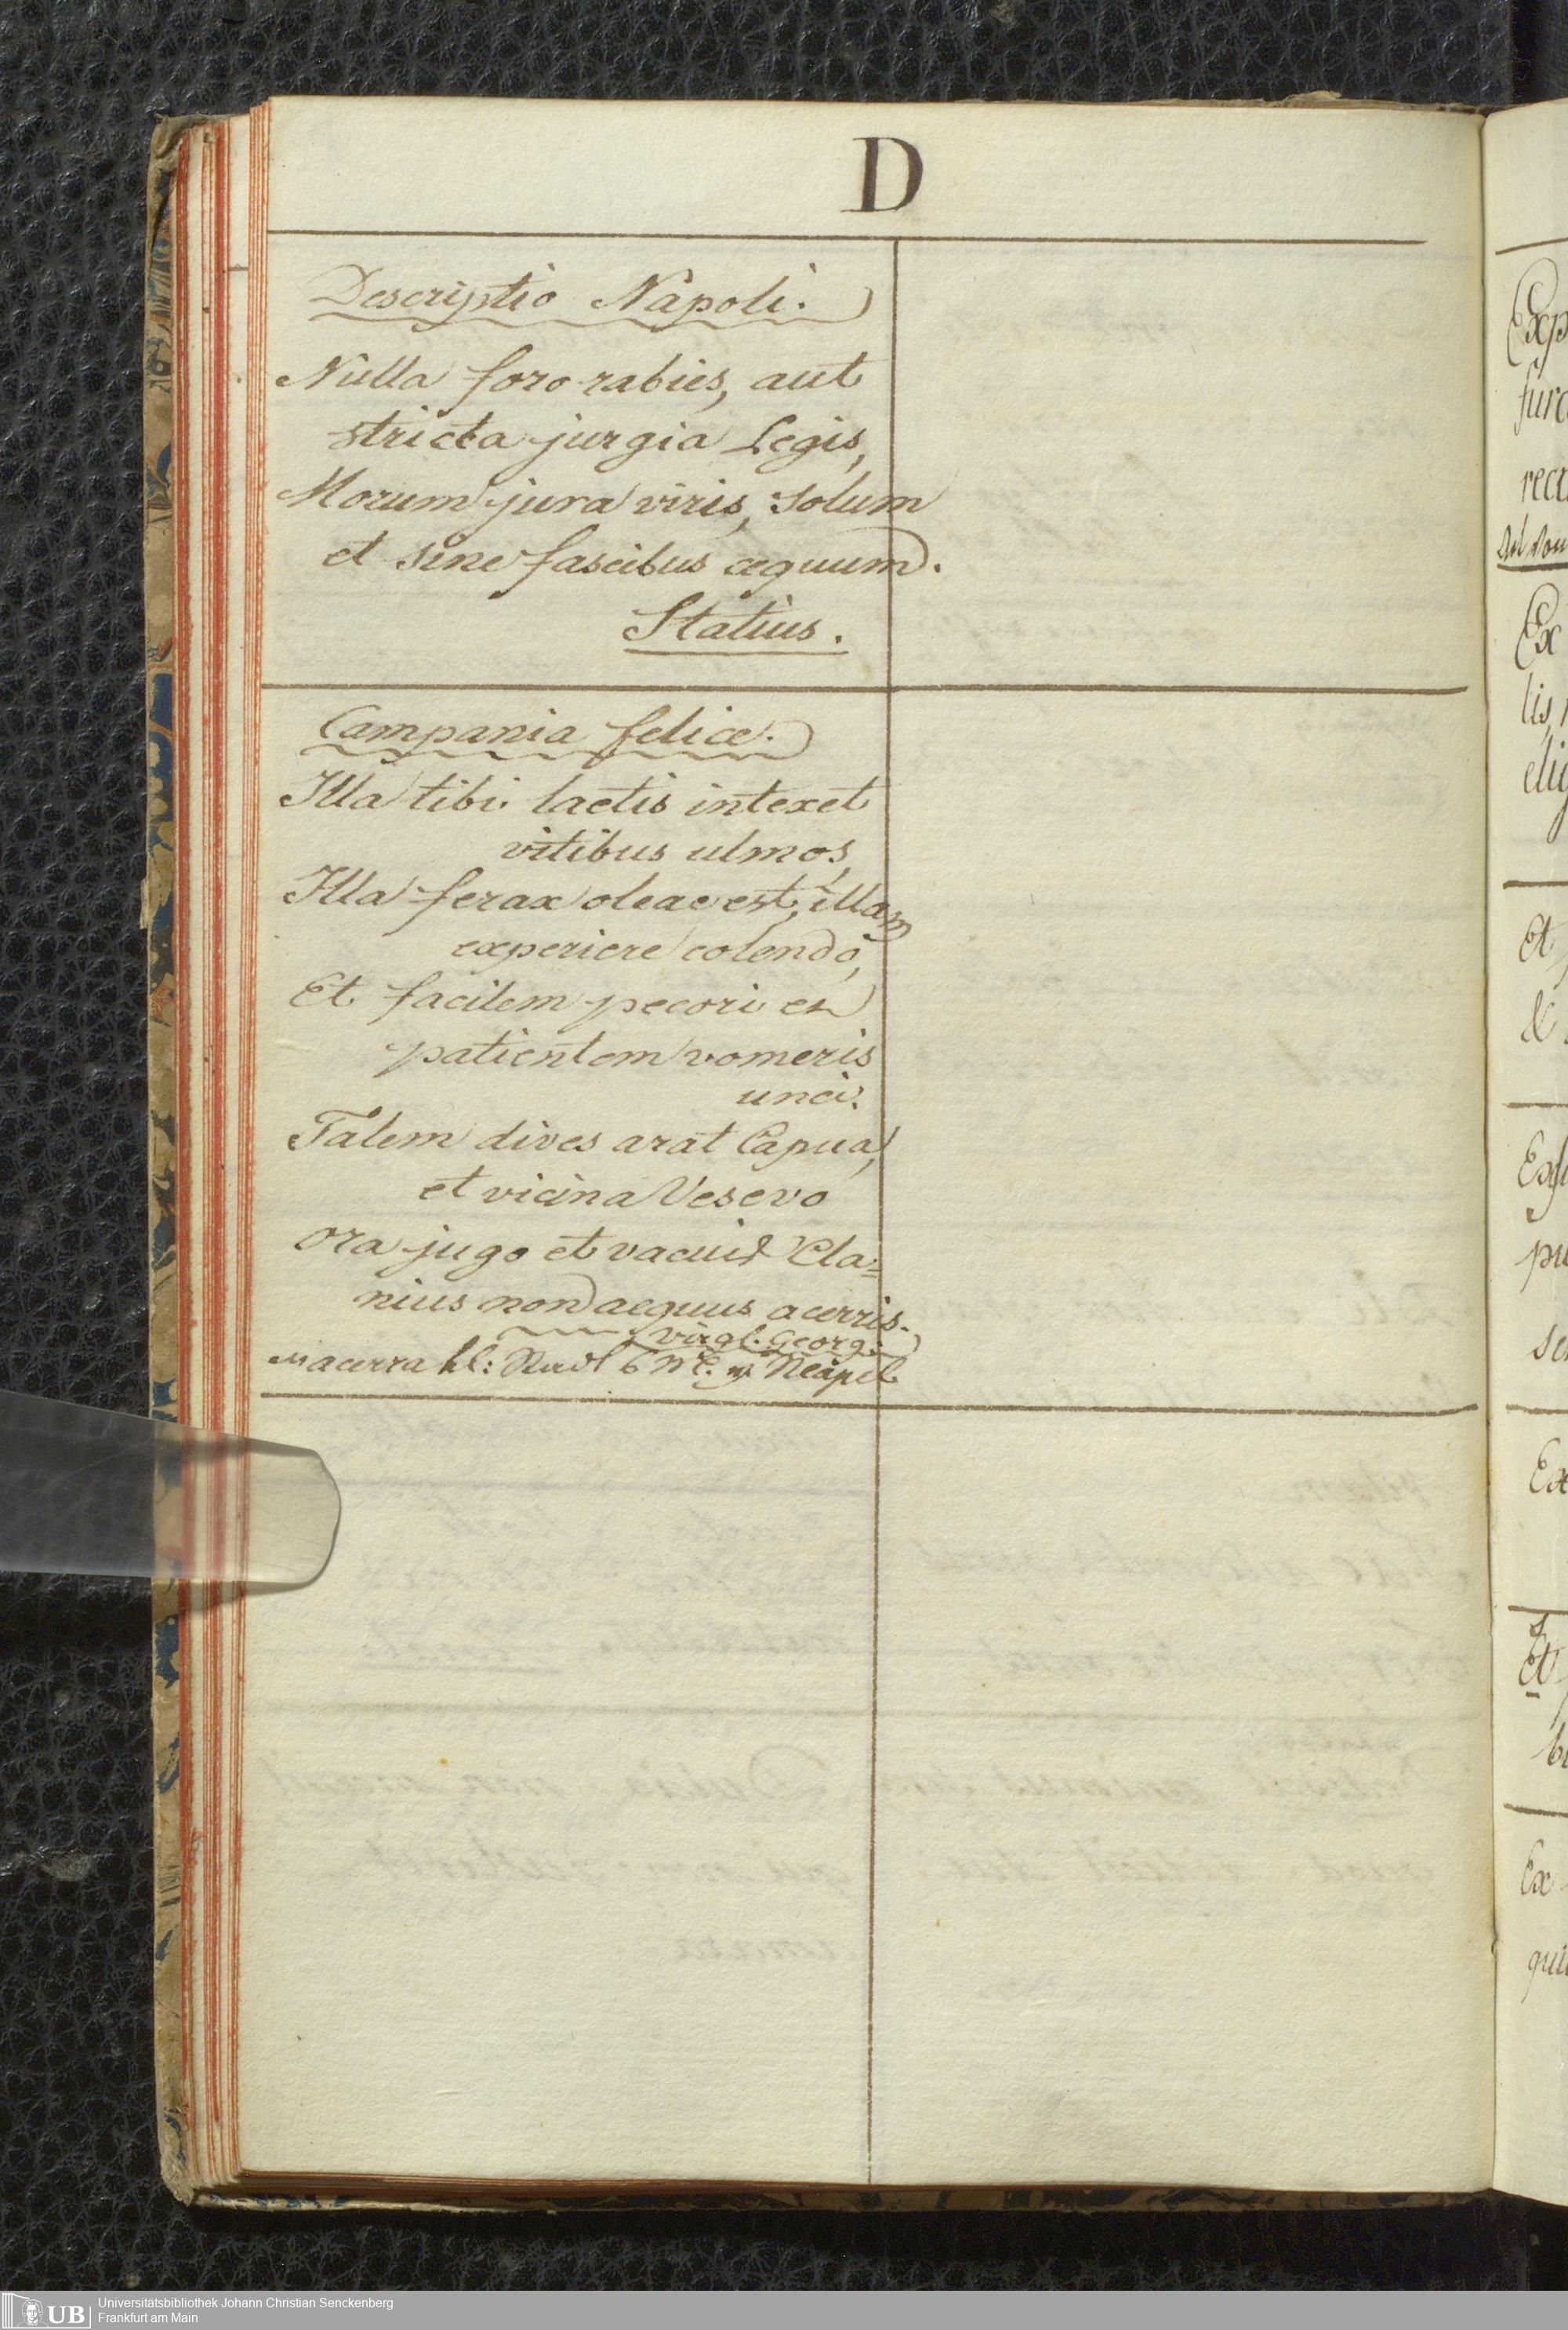 D
Descriptio Napoli.
Nulla foro rabies, aut
stricta jurgia Legis,
Morum jura viris, solum
et sine fascibus æquum.
Statius.
Campania felice.
Illa tibi laetis intexet
vitibus ulmos,
Illa ferax oleae est, illam
experiere colendo,
Et facilem pecori et
patientem vomeris
unci.
Talem dives arat Capua,
et vicina Vesevo
Ora jugo et vacuis Cla=
nius non aequus acerris.
Virgl. Georg.
macerra kl: Stadt 6 M. v. Neapel
Exp
furc
rect
Ex
lis,
elig
Et
&
Exp
pu
Ex
Et
Ex
qui
UB
Universitätsbibliothek Johann Christian Senckenberg
Frankfurt am Main